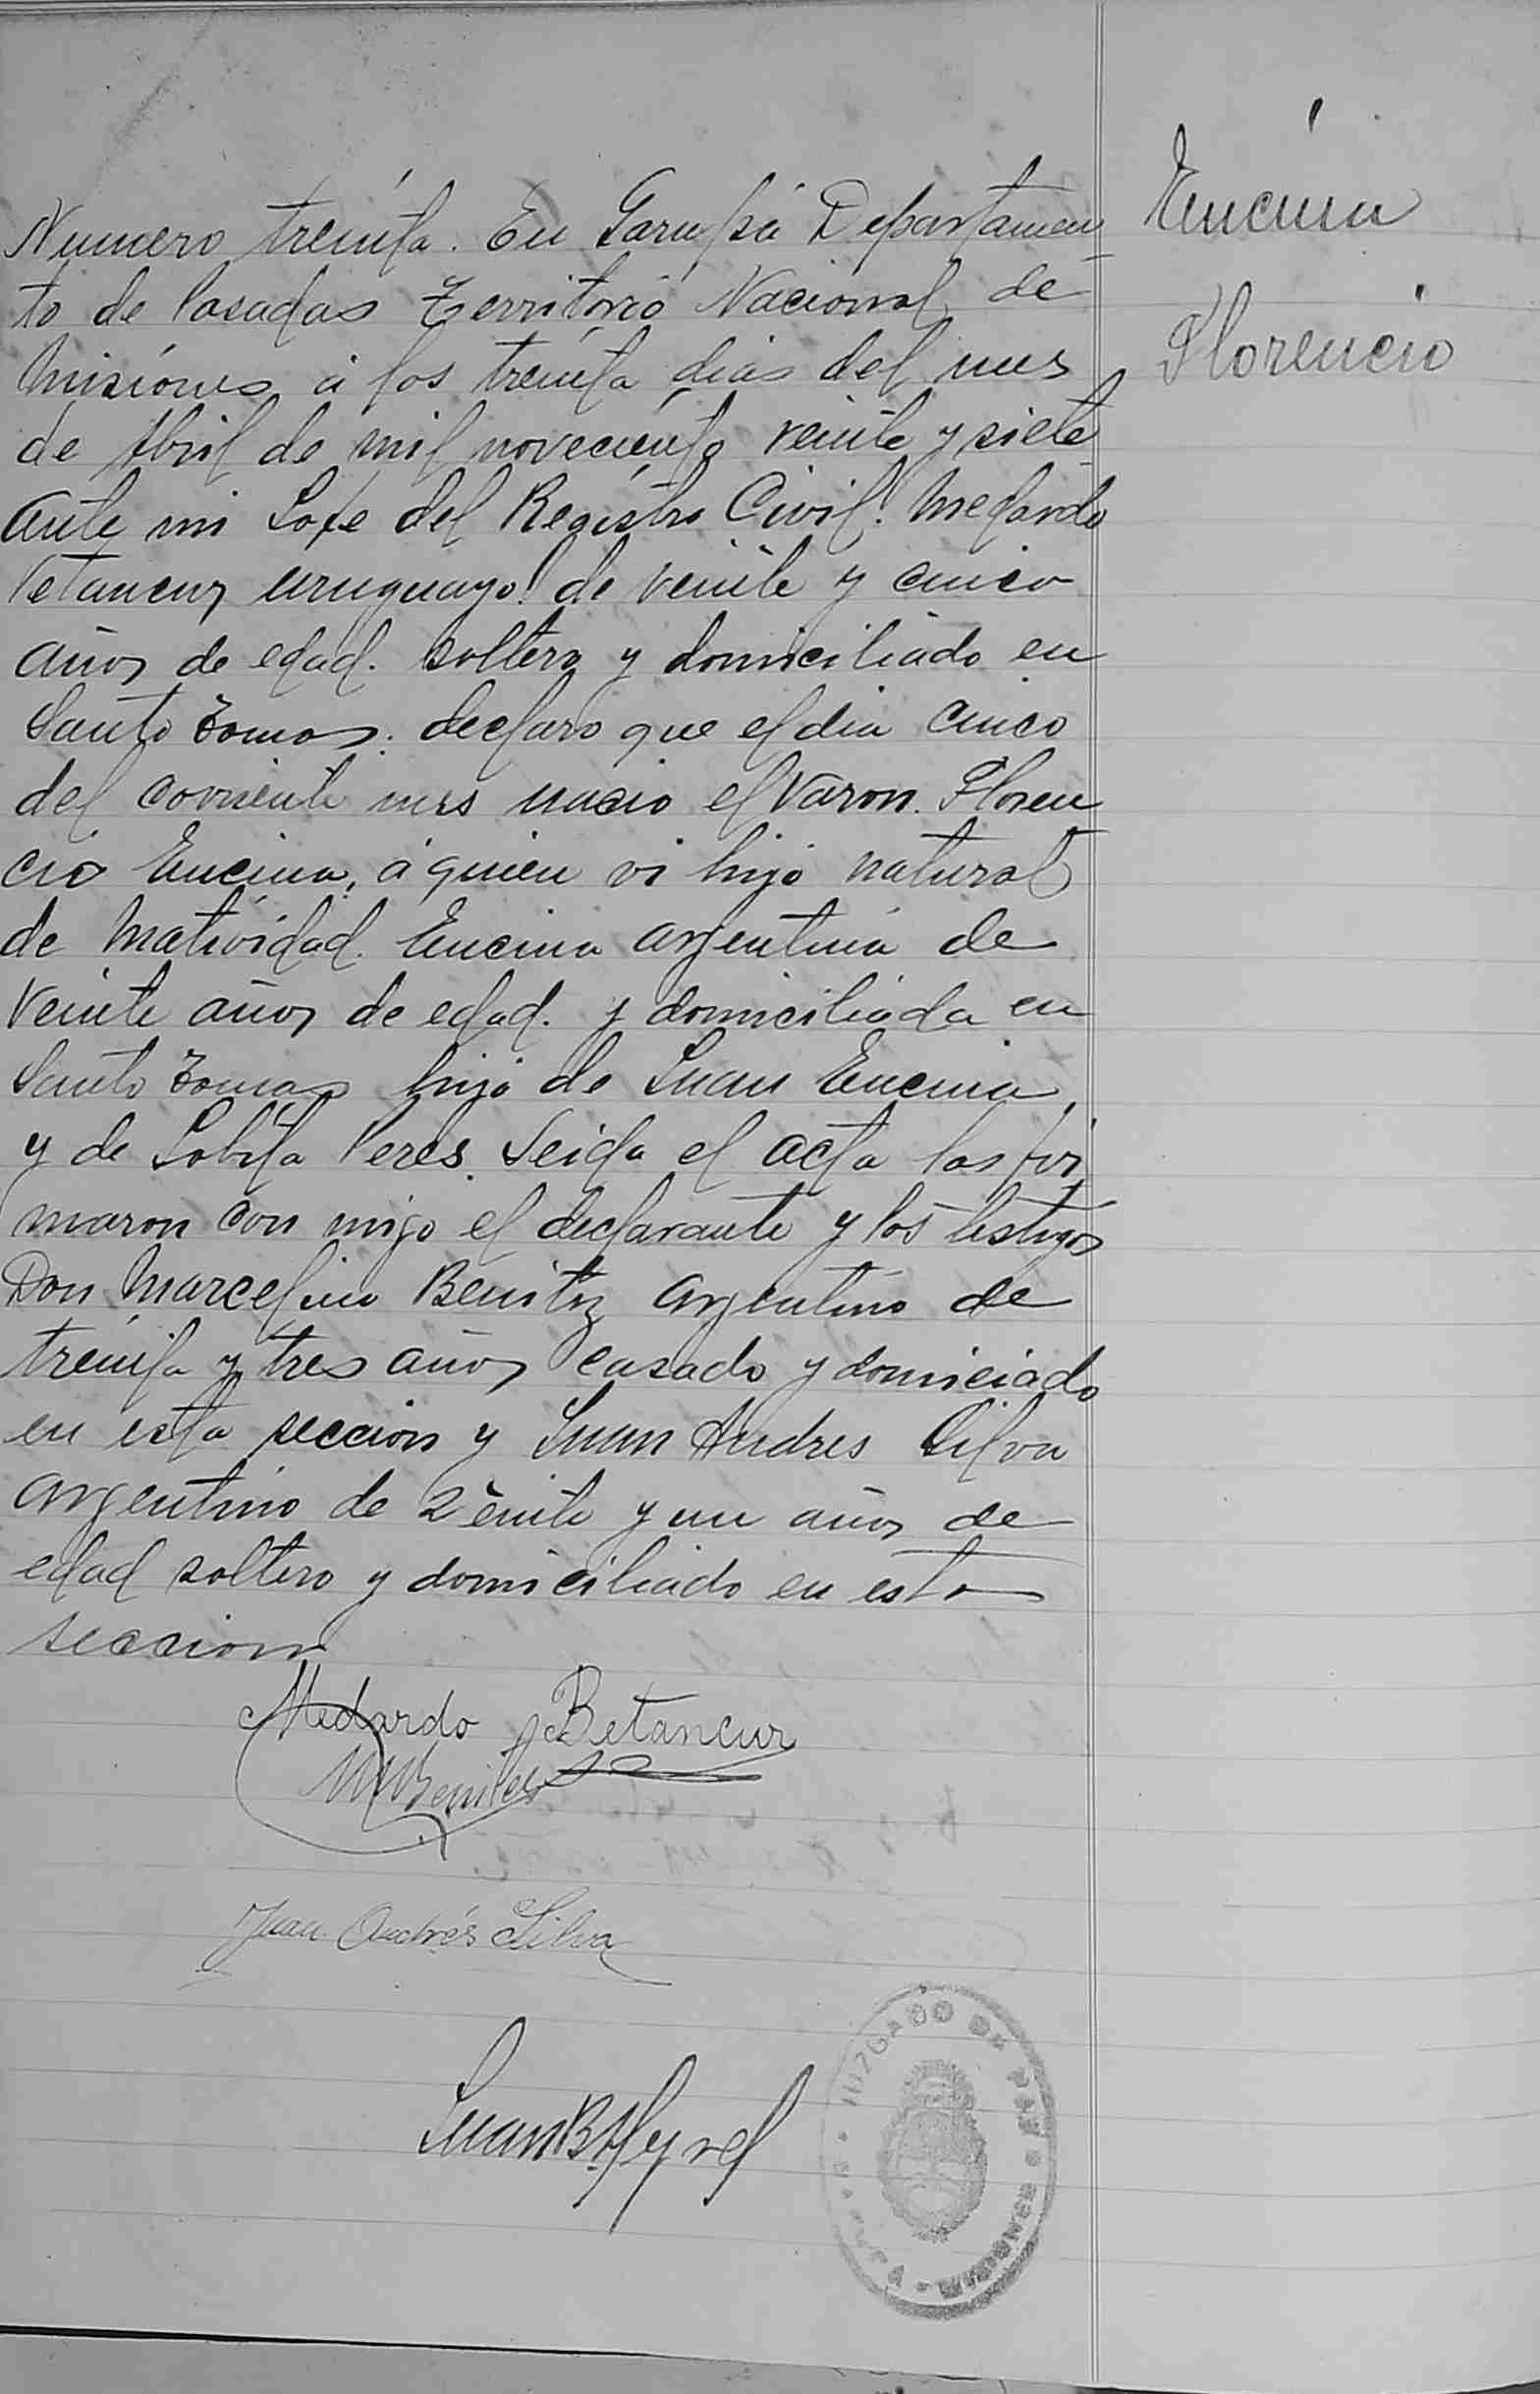 Encina
Florencio
Numero treinta. En Garupá Departamen
to de Posadas Territorio Nacional de
Misiones á los treinta dias del mes
de Abril de mil noveciento veinte y siete
Ante mi Jefe del Registro Civil. Medardo
Betancur uruguayo de veinte y cinco
años de edad. soltero y domiciliado en
Santo Tomas. declaro que el dia cinco
del corriente mes nacio el Varon. Floren
cio Encina, á quien vi hijo natural
de Natividad. Encina argentina de
Veinte años de edad. y domiciliada en
Santo Tomas hijo de Juan Encina
y de Peres. Leida el acta las fir
maron con migo el declarante y los testigos
Don Marcelino Benitez argentino de
treinta y tres años casado y domiciado
en esta seccion y Juan Andres Silva
argentino de Veinte y un años de
edad soltero y domiciliado en esta
seccion
Medardo Betancur
M Benitez
Juan Andrés Silva
Juan B.
JUZGADO DE PAZ